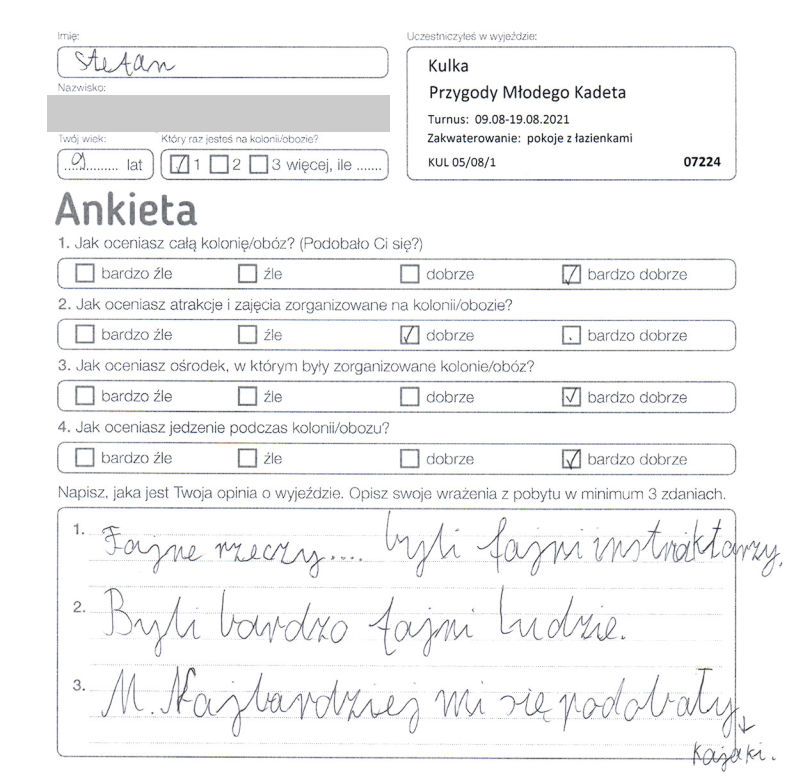 Imię:
Stefan
Nazwisko:
Twój wiek:
9 lat
Który raz jesteś na kolonii/obozie?
1 2 3 więcej, ile .......
Uczestniczyłeś w wyjeździe:
Kulka
Przygody Młodego Kadeta
Turnus: 09.08-19.08.2021
Zakwaterowanie: pokoje z łazienkami
KUL 05/08/1 07224
Ankieta
1. Jak oceniasz całą kolonię/obóz? (Podobało Ci się?)
bardzo źle źle dobrze bardzo dobrze
2. Jak oceniasz atrakcje i zajęcia zorganizowane na kolonii/obozie?
bardzo źle źle dobrze bardzo dobrze
3. Jak oceniasz ośrodek, w którym były zorganizowane kolonie/obóz?
bardzo źle źle dobrze bardzo dobrze
4. Jak oceniasz jedzenie podczas kolonii/obozu?
bardzo źle źle dobrze bardzo dobrze
Napisz, jaka jest Twoja opinia o wyjeździe. Opisz swoje wrażenia z pobytu w minimum 3 zdaniach.
1. Fajne rzeczy.... byli fajni instraktarzy,
2. Byli bardzo fajni ludzie.
3. M. Najbardziej mi się podobały
kajaki.